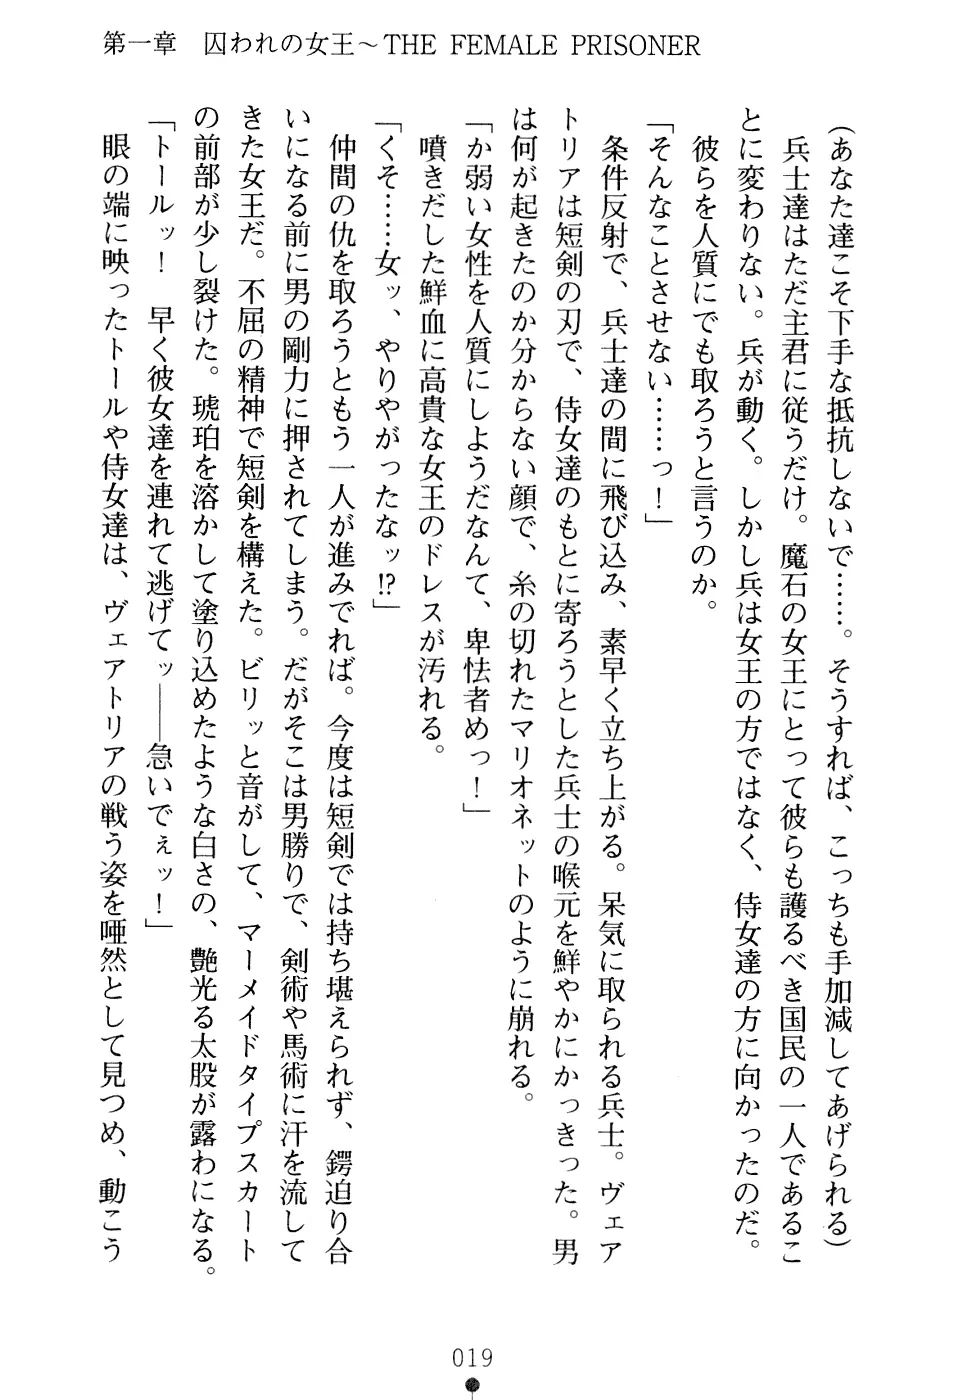 第一章　囚われの女王～THE FEMALE PRISONER
(あなた達こそ下手な抵抗しないで……。そうすれば、こっちも手加減してあげられる)
　兵士達はただ主君に従うだけ。魔石の女王にとって彼らも護るべき国民の一人であるこ
とに変わりない。兵が動く。しかし兵は女王の方ではなく、侍女達の方に向かったのだ。
　彼らを人質にでも取ろうと言うのか。
「そんなことさせない……っ！」
　条件反射で、兵士達の間に飛び込み、素早く立ち上がる。呆気に取られる兵士。ヴェア
トリアは短剣の刃で、侍女達のもとに寄ろうとした兵士の喉元を鮮やかにかっきった。男
は何が起きたのか分からない顔で、糸の切れたマリオネットのように崩れる。
「か弱い女性を人質にしようだなんて、卑怯者めっ！」
　噴きだした鮮血に高貴な女王のドレスが汚れる。
「くそ……女ッ、やりやがったなッ!?」
　仲間の仇を取ろうともう一人が進みでれば。今度は短剣では持ち堪えられず、鍔迫り合
いになる前に男の剛力に押されてしまう。だがそこは男勝りで、剣術や馬術に汗を流して
きた女王だ。不屈の精神で短剣を構えた。ビリッと音がして、マーメイドタイプスカート
の前部が少し裂けた。琥珀を溶かして塗り込めたような白さの、艶光る太股が露わになる。
「トールッ！　早く彼女達を連れて逃げてッ――急いでぇッ！」
　眼の端に映ったトールや侍女達は、ヴェアトリアの戦う姿を唖然として見つめ、動こう
019